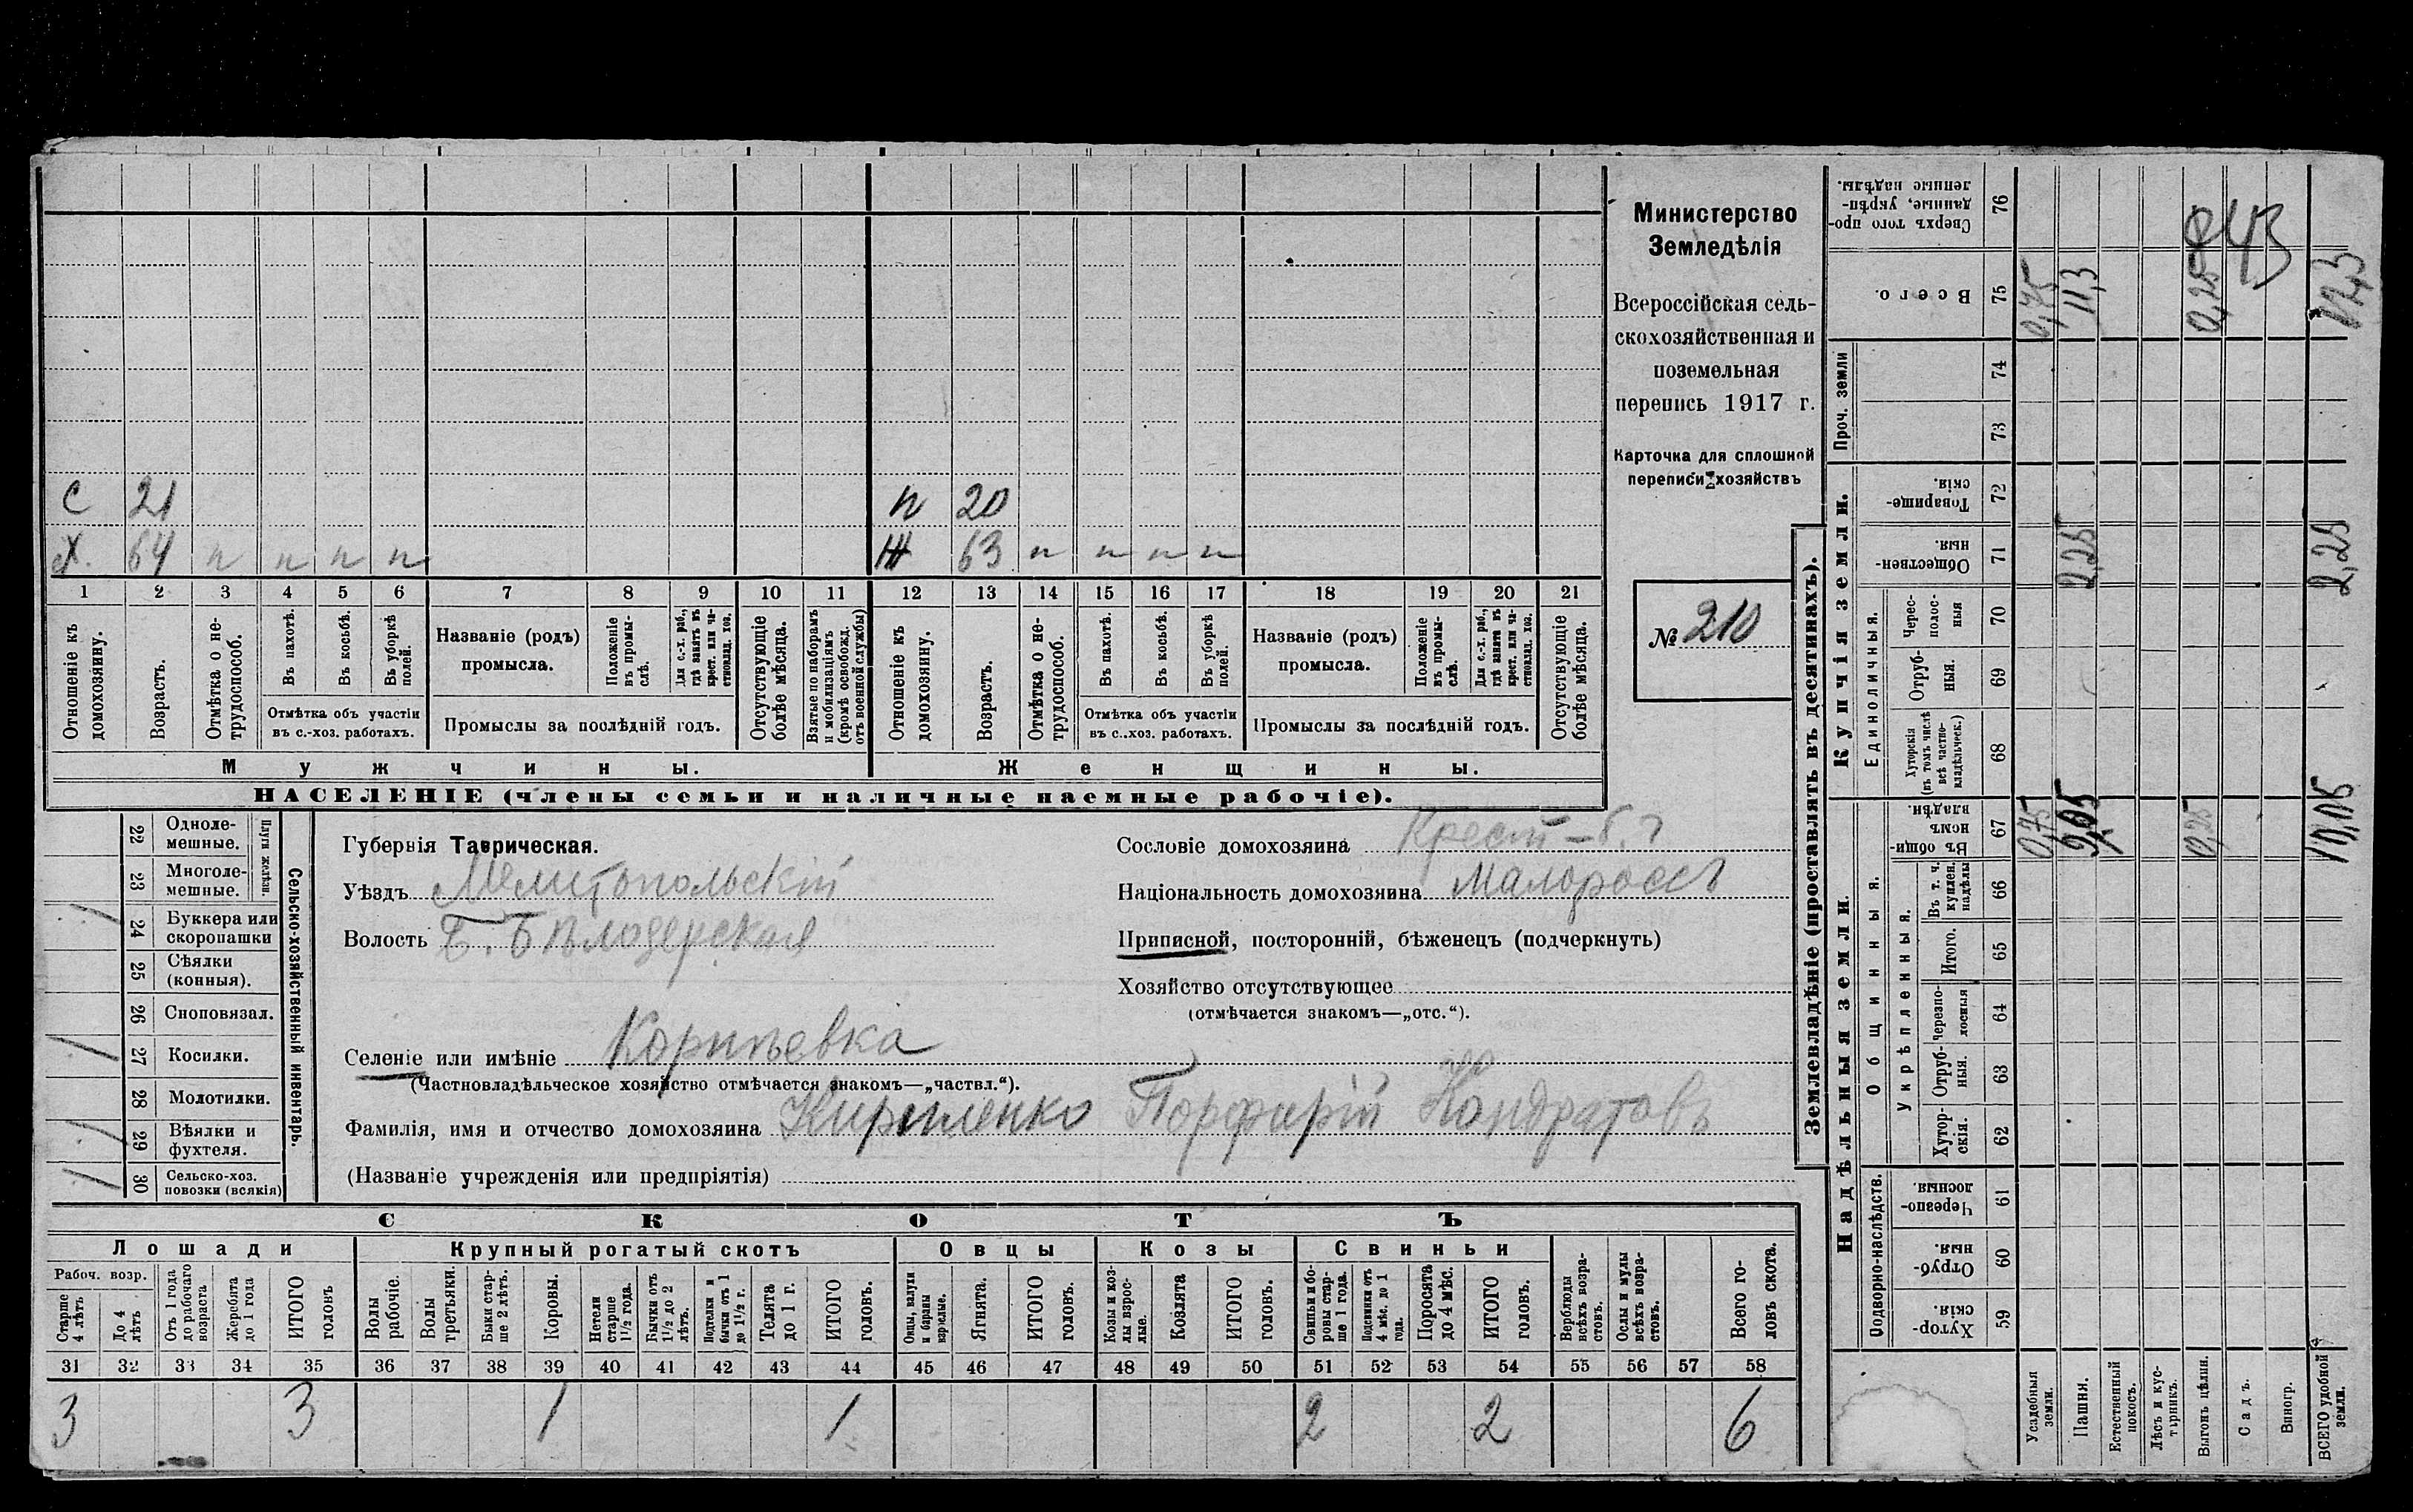 С 21 п 20
Х. 64 п п п п Ж 63 п п п п
1 2 3 4 5 6 7 8 9 10 11 12 13 14 15 16 17 18 19 20 21
Отношеніе къ домохозяину.
Возрастъ.
Отмѣтка о нетрудоспособ.
Въ пахотѣ.
Въ косьбѣ.
Въ уборкѣ полей.
Отмѣтка объ участіи
въ с.-хоз. работахъ.
Названіе (родъ)
промысла.
Положеніе въ промыслѣ.
Для с.-х. раб., гдѣ занятъ въ крест. или частновлад. хоз.
Промыслы за послѣдній годъ.
Отсутствующіе болѣе мѣсяца.
Взятые по наборамъ и мобилизаціямъ (кромѣ освобожд. отъ военной службы)
Отношеніе къ домохозяину.
Возрастъ.
Отмѣтка о нетрудоспособ.
Въ пахотѣ.
Въ косьбѣ.
Въ уборкѣ полей.
Отмѣтка объ участіи
въ с.-хоз. работахъ.
Названіе (родъ)
промысла.
Положеніе въ промыслѣ.
Для с.-х. раб., гдѣ занята въ крест. или частновлад. хоз.
Промыслы за послѣдній годъ.
Отсутствующіе болѣе мѣсяца.
Мужчины. Женщины.
НАСЕЛЕНІЕ (члены семьи и наличные наемные рабочіе).
Министерство
Земледѣлія
Всероссійская сель-
скохозяйственная и
поземельная
перепись 1917 г.
Карточка для сплошной
переписи хозяйствъ
№ 210
Сельско-хозяйственный инвентарь.
Плуги желѣзн.
22 Однолемешные.
23 Многолемешные.
24 Буккера или скоропашки
25 Сѣялки (конныя).
26 Сноповязал.
1 27 Косилки.
28 Молотилки.
1 29 Вѣялки и фухтеля.
1 30 Сельско-хоз. повозки (всякія)
Губернія Таврическая.
Уѣздъ Мелитопольскій
Волость Б. Бѣлозерская
Селеніе или имѣніе Корнѣевка
(Частновладѣльческое хозяйство отмѣчается знакомъ—„частвл.“).
Фамилія, имя и отчество домохозяина Кириленко Порфирій Кондратовъ
(Названіе учрежденія или предпріятія)
Сословіе домохозяина Крест-
Національность домохозяина Малороссъ
Приписной, посторонній, бѣженецъ (подчеркнуть)
Хозяйство отсутствующее
(отмѣчается знакомъ—„отс.“).
СКОТЪ
Лошади Крупный рогатый скотъ Овцы Козы Свиньи
Рабоч. возр.
Старше 4 лѣтъ
До 4 лѣтъ
Отъ 1 года до рабочаго возраста
Жеребята до 1 года
ИТОГО головъ
Волы рабочіе.
Волы третьяки.
Быки старше 2 лѣтъ.
Коровы.
Нетели старше 1½ года.
Бычки отъ 1½ до 2 лѣтъ.
Подтелки и бычки отъ 1 до 1½ г.
Телята до 1 г.
ИТОГО головъ.
Овцы, валухи и бараны взрослые.
Ягнята.
ИТОГО головъ.
Козы и козлы взрослые.
Козлята
ИТОГО головъ.
Свиньи и боровы старше 1 года.
Подсвинки отъ 4 мѣс. до 1 года.
Поросята до 4 мѣс.
ИТОГО головъ.
Верблюды всѣхъ возрастовъ.
Ослы и мулы всѣхъ возрастовъ.
Всего головъ скота.
31 32 33 34 35 36 37 38 39 40 41 42 43 44 45 46 47 48 49 50 51 52 53 54 55 56 57 58
3 3 1 1 2 2 6
Землевладѣніе (проставлять въ десятинахъ).
Надѣльныя земли. Купчія земли. Проч. земли
Подворно-наслѣдств. Общинныя. Единоличныя.
Укрѣпленныя.
59 Хуторскія.
60 Отрубныя.
61 Черезполосныя.
62 Хуторскія.
63 Отрубныя.
64 Черезполосныя
65 Итого.
66 Въ т. ч. куплен. надѣлы
67 Въ общинномъ владѣн.
68 Хуторскія (въ томъ числѣ всѣ частновладѣльческ.)
69 Отрубныя.
70 Чересполосныя
71 Общественныя.
72 Товарищескія.
73
74
75 Всего.
76 Сверхъ того проданные, укрѣпленные надѣлы.
Усадебныя земли. 0,75 0,75
Пашня. 9,05 2,25 11,3
Естественный покосъ.
Лѣсъ и кустарникъ.
Выгонъ цѣлин. 0,25 0,25
Садъ.
Виногр.
ВСЕГО удобной земли. 10,05 2,25 12,3